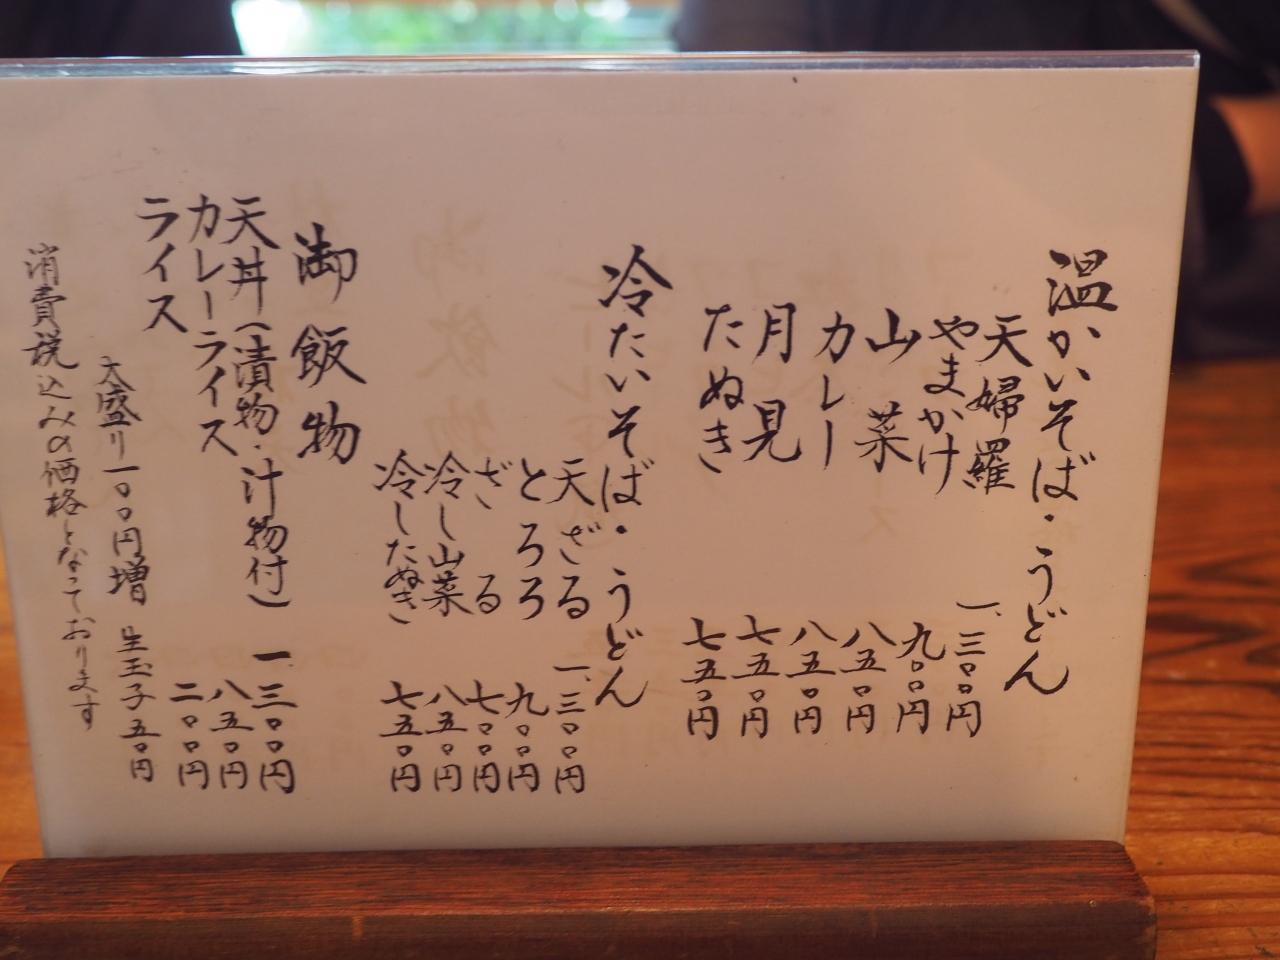 温かいそば・うどん
天婦羅 一、三〇〇円
やまかけ 九〇〇円
山菜 八五〇円
カレー 八五〇円
月見 七五〇円
たぬき 七五〇円
冷たいそば・うどん
天ざる 一、三〇〇円
とろろ 九〇〇円
ざる 七〇〇円
冷し山菜 八五〇円
冷したぬき 七五〇円
御飯物
天丼（漬物・汁物付） 一三〇〇円
カレーライス 八五〇円
ライス 二〇〇円
大盛り一〇〇円増 生玉子五〇円
消費税込みの価格となっております